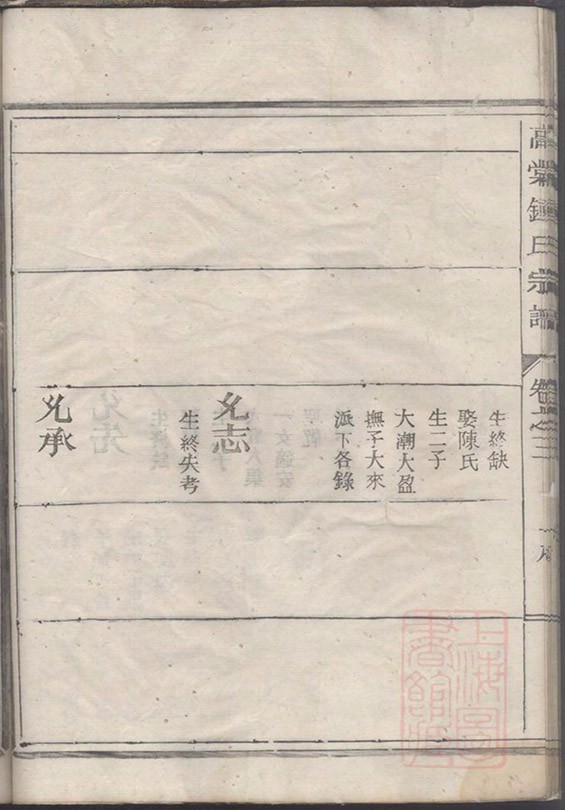 生終缺
娶陳氏
生二子
大潮大盈
撫子大來
派下各錄
允志
生終失考
允承
氏宗譜
上海圖書館藏